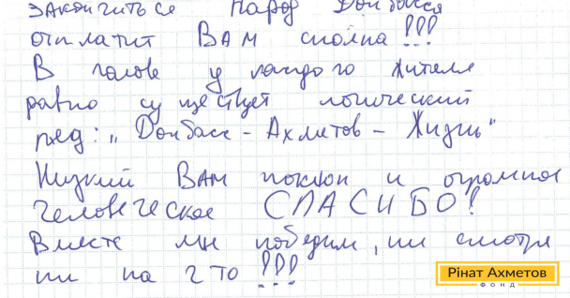 закончиться народ Донбасса
отплатит ВАМ сполна!!!
В голове у каждого жителя
давно существует логический
ряд: „Донбасс - Ахметов - Жизнь"
Низкий ВАМ поклон и огромное
человеческое СПАСИБО!
Вместе мы победим, ни смотря
ни на что!!!
Рінат Ахметов
ФОНД